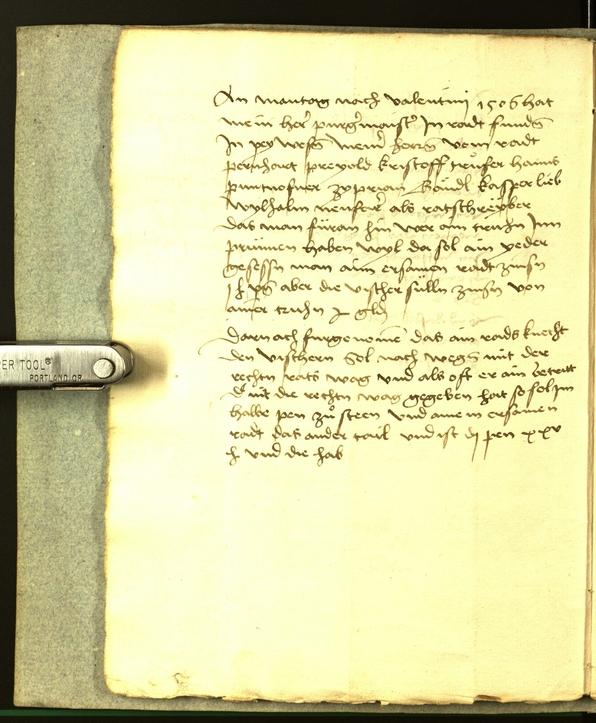 An mantag nach valentini 1506 hat
mein her purgermaister In radt funden
In peywesen meiner heren vom radt
pernhart preyold kristoff trusser hanns
zyprian Händl kasper lieb
Wylhalm als ratschreyber
das man füran hin wer ain truhn Inn
prunnen haben wyl da sol ain yeder
gesessn man aim ersamen radt zinsn
aber die vischer sülln zinsn von
ainer truhn
Darnach furgenomen das ain radsknecht
den vischern sol nach wegn mit der
rechtn rats wag und als oft er ain betritt
der nit die rechtn wag gegeben hat so sol Im
halbe pen zu steen und aim ersamen
radt das ander tail und ist dj pen xxv
und die hab
PER TOOL®
PORTLAND, OR.